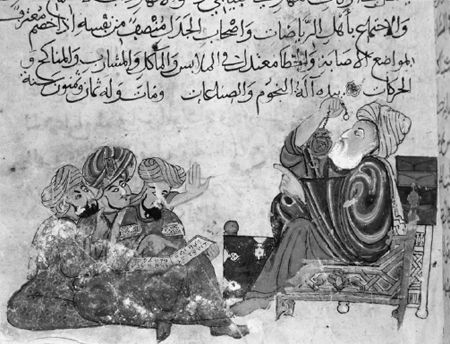 والاجتماع بأهل الرياضات واصحاب الجدل منصف من نفسه اذا خصم معترف
المواضع الاصابة والخطا معتدل في الملابس والماكل والمشارب والمناكح و
الحركات بيده آلة النجوم والساعات ومات وله ثمان وستون سنة